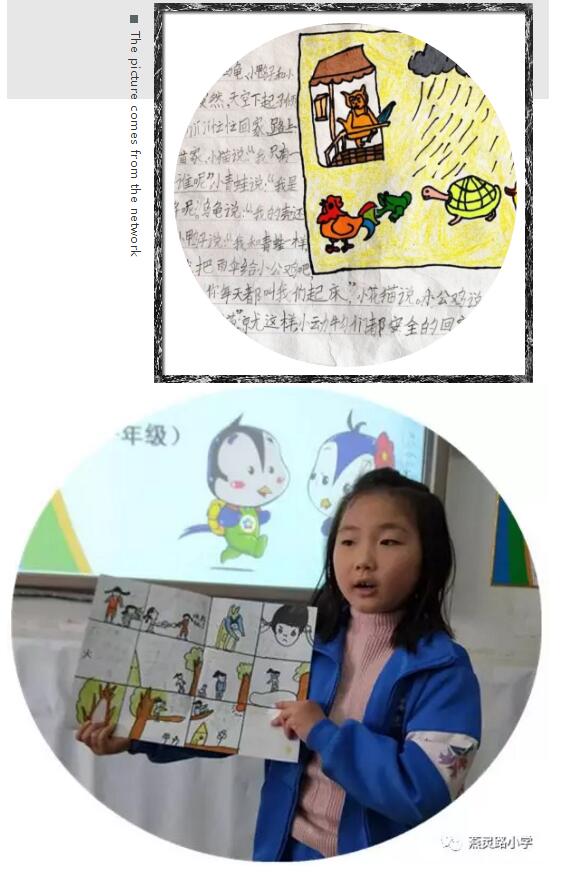 The picture comes from the network
龟、小鸭子和小
然,天空下起了
忙忙回家,路上
家,小猫说:“我只有一
谁呢”,小青蛙说:“我是
呢,乌龟说:“我的壳还
鸭子说:“我和青蛙一样,
把雨伞给小公鸡吧,
每天都叫我们起床,”小花猫说。小公鸡说
”就这样小动物们都安全的回
年级）
火
燕灵路小学